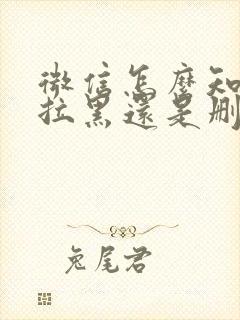 微信怎麼知
拉黑還是刪
兔尾君